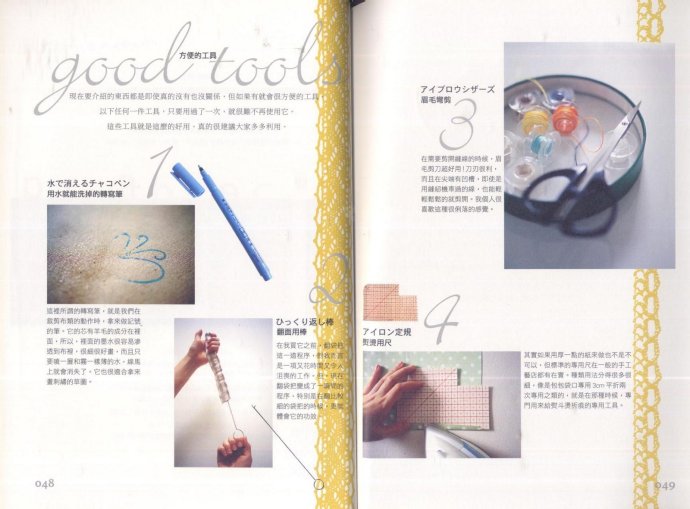 good tools
方便的工具
現在要介紹的東西都是即使真的沒有也沒關係，但如果有就會很方便的工具。
以下任何一件工具，只要用過了一次，就很難不再使用它。
這些工具就是這麼的好用，真的很建議大家多多利用。
1
水で消えるチャコペン
用水就能洗掉的轉寫筆
這裡所謂的轉寫筆，就是我們在
裁剪布類的動作時，拿來做記號
的筆。它的芯有羊毛的成分在裡
面，所以，裡面的墨水很容易滲
透到布裡，很細很好畫，而且只
要噴一層和霧一樣薄的水，線馬
上就會消失了。它也很適合拿來
畫刺繡的草圖。
2
ひっくり返し棒
翻面用棒
在我買它之前，翻袋把
這一道程序，對我
是一項又花時間又令人
沮喪的工作，但
翻袋把變成了
程序，特別是在翻比較
細的袋把的時候，更能
體會它的功效。
048
アイブロウシザーズ
眉毛彎剪
3
在需要剪開縫線的時候，眉
毛剪刀超好用！刀刃很利，
而且在尖端有凹槽，即使是
用縫紉機車過的線，也能輕
輕鬆鬆的就剪開。我個人很
喜歡這種很俐落的感覺。
4
アイロン定規
熨燙用尺
其實如果用厚一點的紙來做也不是不
可以，但標準的專用尺在一般的手工
藝店都有在賣，種類用法分得很多很
細，像是包包袋口專用 3cm 平折兩
次專用之類的，就是在那種時候，專
門用來給熨斗燙折痕的專用工具。
049